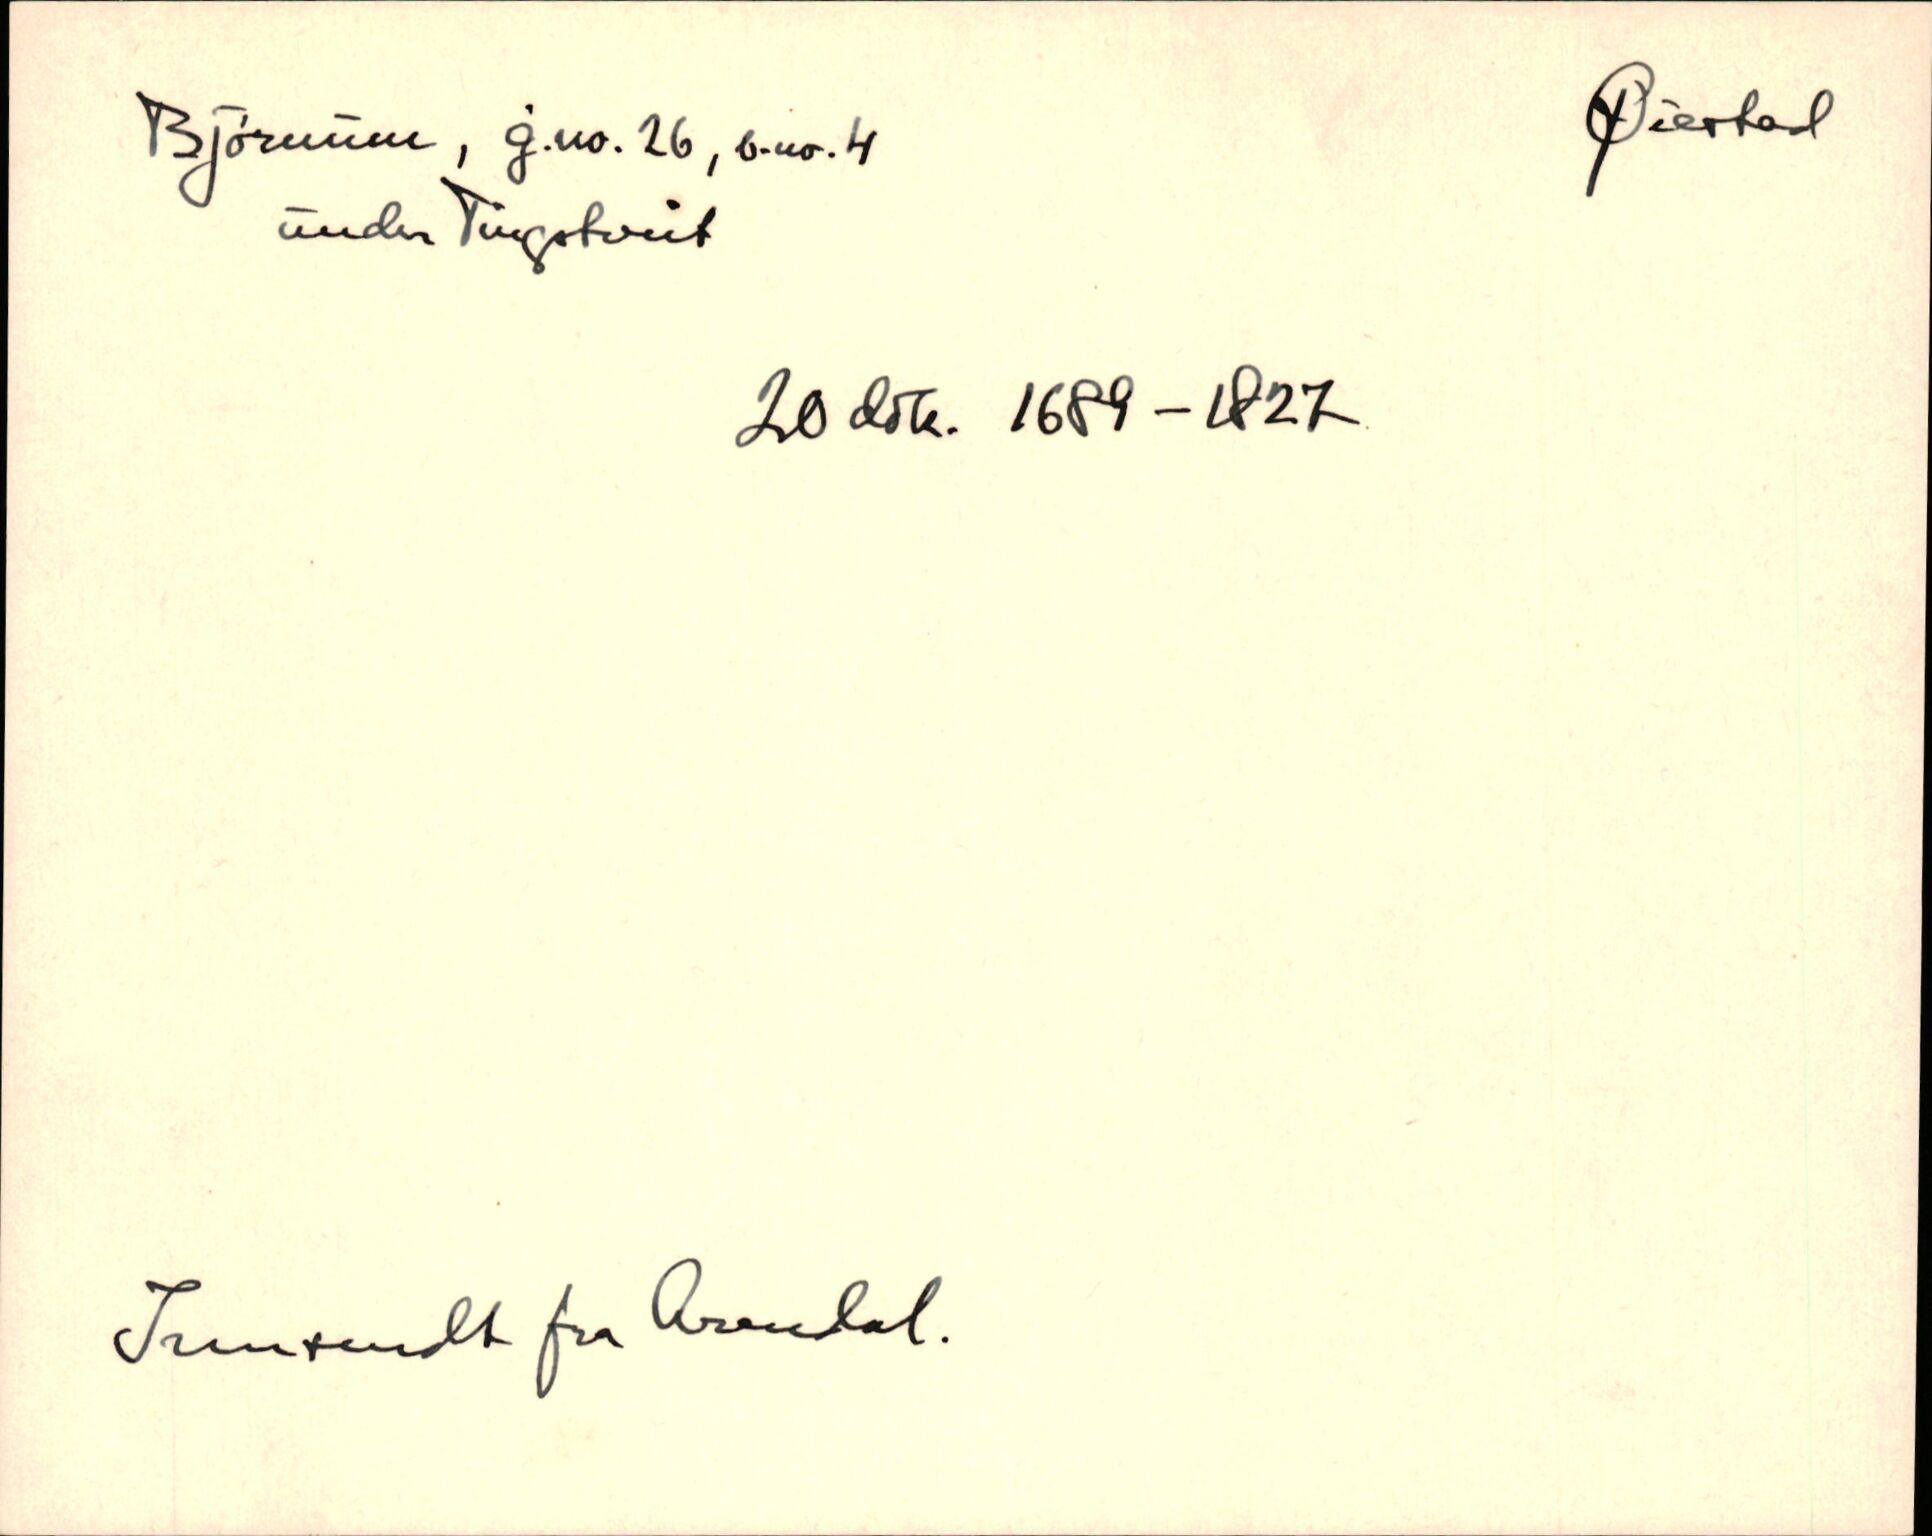 Björnum, g.no. 26, b.no. 4
Øiestad
under Tingstveit
20 dok. 1689-1827
Innsendt fra Arendal.